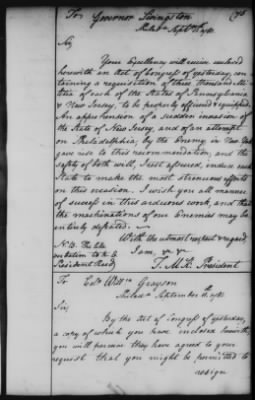 To Governor Livingston
Philada Septr 11th 1781
Sir
Your Excellency will receive enclosed
herewith an Act of Congress of yesterday, con-
taining a requisition of three thousand Mi-
litia of each of the States of Pennsylvania
& New Jersey, to be properly officered & equipped.
An apprehension of a sudden invasion of
the State of New Jersey, and of an attempt
on Philadelphia, by the Enemy in New York
gave rise to this recommendation; and the
safety of both will, I rest assured, induce each
State to make the most strenuous efforts
on this occasion. I wish you all manner
of success in this arduous work, and that
the machinations of our Enemies may be
entirely defeated.
With the utmost respect & regard,
I am, &c &c
T. M.K. President
N.B. The like
written to H. E.
President Reed
To Colo Willm Grayson
Philada September 11. 1781
Sir,
By the Act of Congress of yesterday,
a copy of which you have inclosed herewith,
you will perceive they have agreed to your
request that you might be permitted to
resign